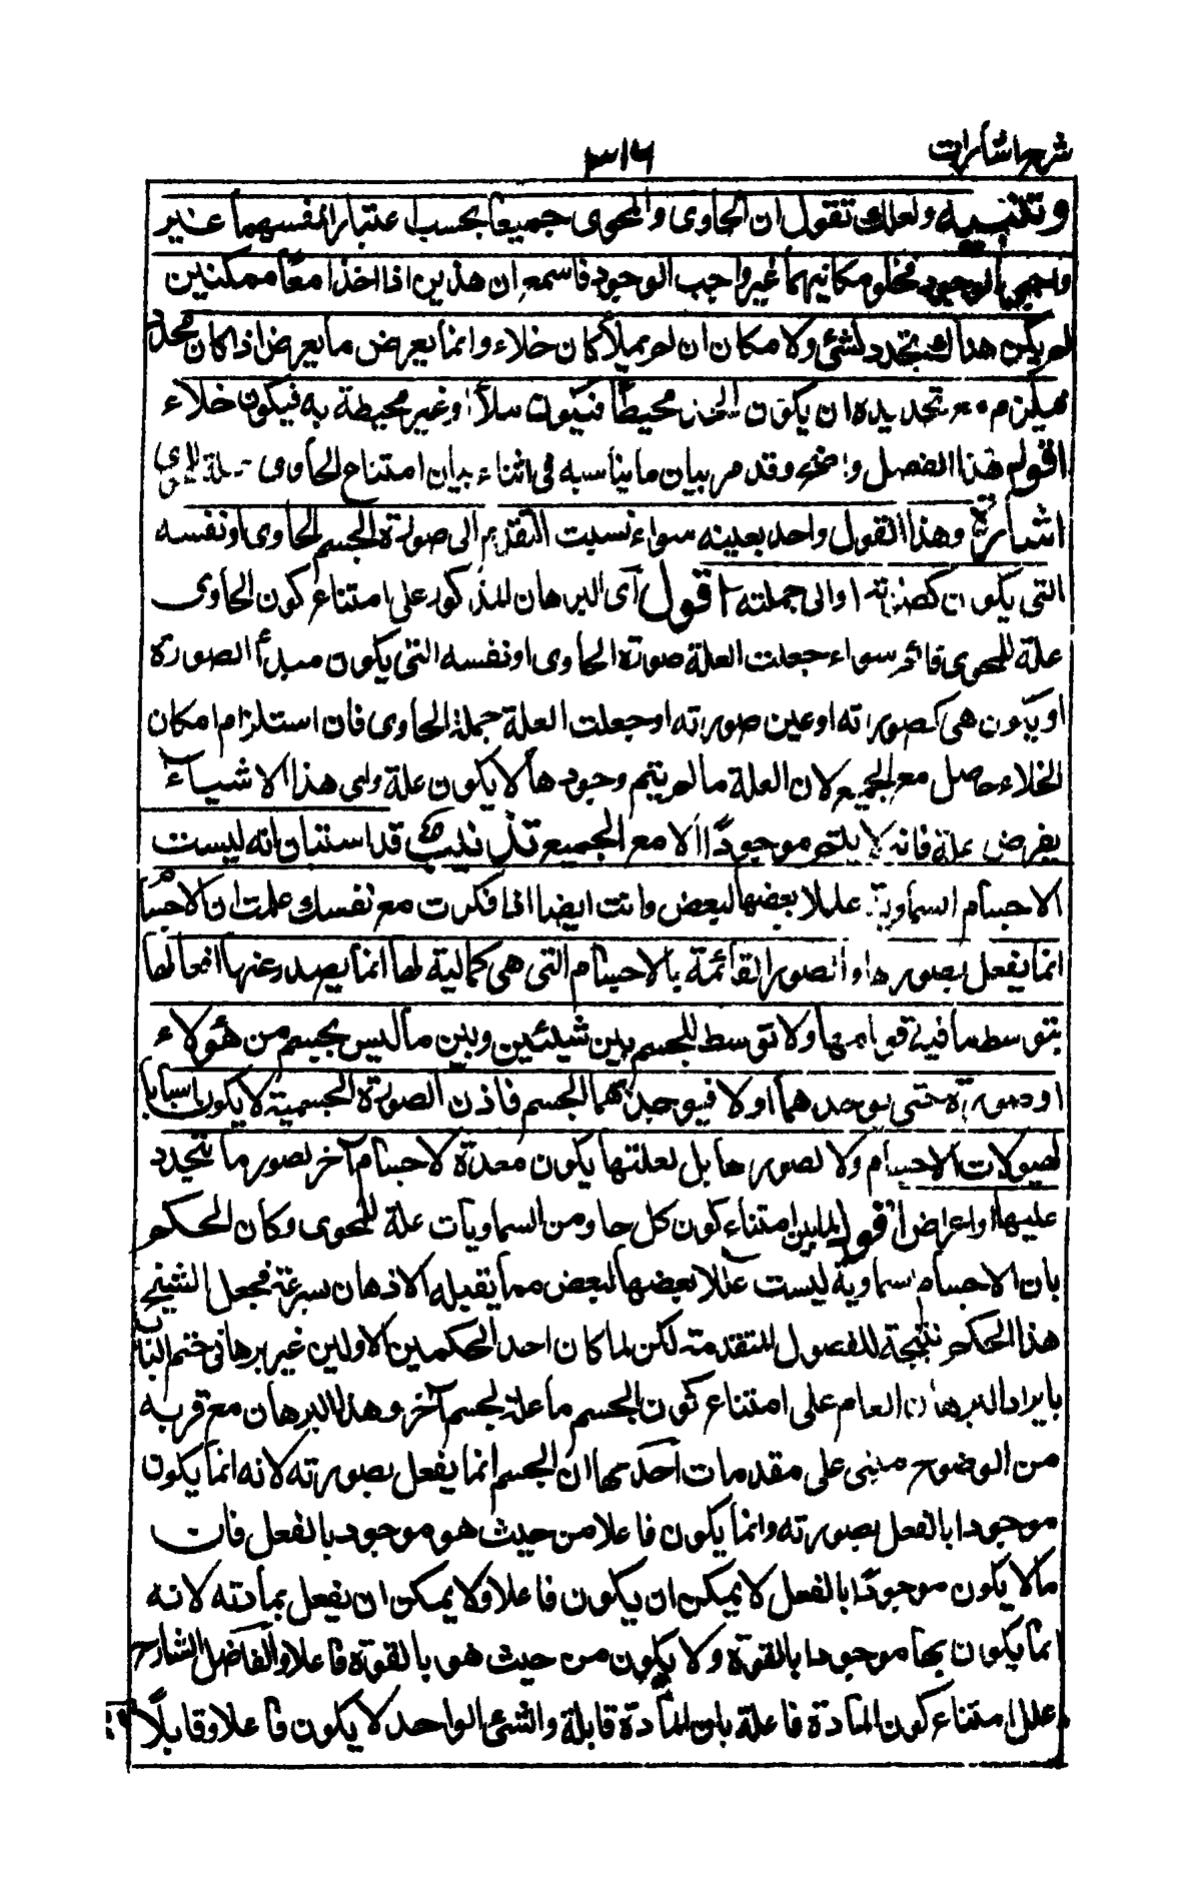 شرح اشارات
٣١٦
وتنبيه ولعلك تقول ان الحاوى والمحوى جميعا بحسب اعتبار انفسهما غير
واجبى الوجود فخلو مكانيهما غير واجب الوجود فاسمع ان هذين اذا اخذا معا ممكنين
لم يكن هناك تحدد لشئ ولا مكان ان لم يملأ كان خلاء وانما يعرض ما يعرض اذا كان محدد
مع تحديده ان يكون محيطا فيكون ملأ او غير محيطة به فيكون خلاء
اقول هذا الفصل واضح وقد مر بيان ما يناسبه فى اثناء بيان امتناع الحاوى
اشارة وهذا القول واحد بعينه سواء نسبت التقدم الى صورة الجسم الحاوى او نفسه
التى يكون كصورته او الى جملته اقول اى البرهان المذكور على امتناع كون الحاوى
علة للمحوى قائم سواء جعلت العلة صورة الحاوى او نفسه التى يكون مبدأ الصورة
او يكون هى كصورته او عين صورته او جعلت العلة جملة الحاوى فان استلزام امكان
الخلاء حاصل مع الجميع لان العلة ما لم يتم وجودها لا يكون علة واى هذا الاشياء
يفرض علة فانه لا يلتم موجودًا الا مع الجميع تذنيب قد استبان انه ليست
الاجسام السماوية عللا بعضها لبعض وانت ايضا اذا فكرت مع نفسك علمت ان الاجسام
انما يفعل بصورها والصور القائمة بالاجسام التى هى كمالية لها انما يصدر عنها افعالها
بتوسط ما فيه قوامها ولا توسط للجسم بين شيئين وبين ما ليس بجسم من هؤلاء
او صورة حتى يوجدهما اولا فيوجد بهما الجسم فاذن الصورة الجسمية لا يكون اسبابا
لهيولات الاجسام ولا لصورها بل لعلتها يكون معدة لاجسام آخر لصور ما تتجدد
عليها او اعراض اقول لما بين امتناع كون كل حاو من السماويات علة للمحوى وكان الحكم
بان الاجسام السماوية ليست عللا بعضها لبعض مما يقبله الاذهان بسرعة فجعل الشيخ
هذا الحكم نتيجة للفصول المتقدمة لكن لما كان احد الحكمين الاولين غير برهانى ختم الباب
بايراد البرهان العام على امتناع كون الجسم ما علة لجسم آخر وهذا البرهان مع قربه
من الوضوح مبنى على مقدمات احدها ان الجسم انما يفعل بصورته لانه انما يكون
موجودا بالفعل بصورته وانما يكون فاعلا من حيث هو موجود بالفعل فان
ما لا يكون موجودًا بالفعل لا يمكن ان يكون فاعلا ولا يمكن ان يفعل بمادته لانه
انما يكون بها موجودا بالقوة ولا يكون من حيث هو بالقوة فاعلا والفاضل الشارح
علل امتناع كون المادة فاعلة بان المادة قابلة والشئ الواحد لا يكون فاعلا وقابلًا